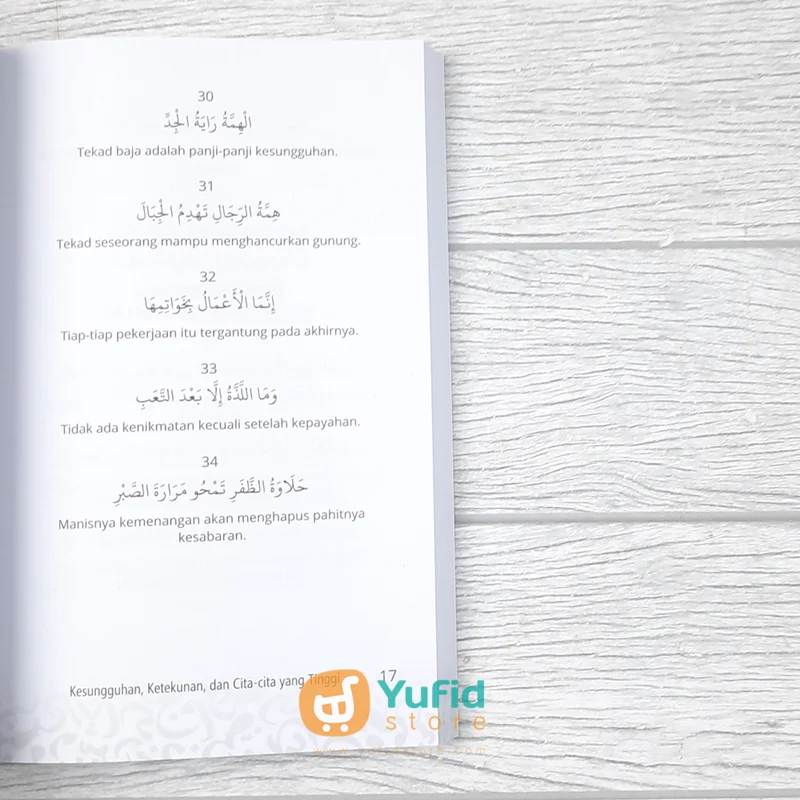 30
الْهِمَّةُ رَايَةُ الْجِدِّ
Tekad baja adalah panji-panji kesungguhan.
31
هِمَّةُ الرِّجَالِ تَهْدِمُ الْجِبَالَ
Tekad seseorang mampu menghancurkan gunung.
32
إِنَّمَا الْأَعْمَالُ بِخَوَاتِمِهَا
Tiap-tiap pekerjaan itu tergantung pada akhirnya.
33
وَمَا اللَّذَّةُ إِلَّا بَعْدَ التَّعَبِ
Tidak ada kenikmatan kecuali setelah kepayahan.
34
حَلَاوَةُ الظَّفَرِ تَمْحُو مَرَارَةَ الصَّبْرِ
Manisnya kemenangan akan menghapus pahitnya
kesabaran.
Kesungguhan, Ketekunan, dan Cita-cita yang Tinggi 17
YuFid
store